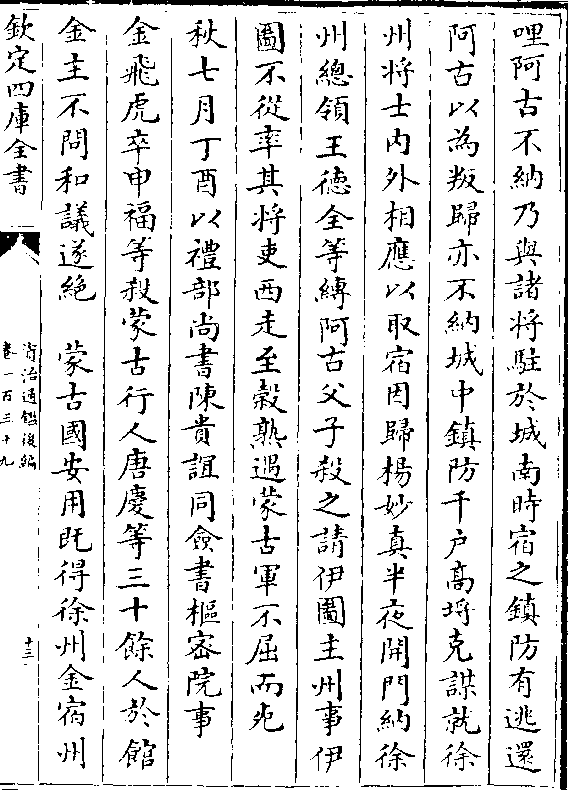 哩阿古不納乃與諸將駐於城南時宿之鎮防有逃還
阿古以為叛歸亦不納城中鎮防千户高埒克謀就徐
州将士内外相應以取宿因歸楊妙真半夜開門納徐
州總領王徳全等縛阿古父子殺之請伊圖主州事伊
圖不從率其将吏西走至榖熟遇蒙古軍不屈而死
秋七月丁酉以禮部尚書陳貴誼同僉書樞密院事
金飛虎卒申福等殺蒙古行人唐慶等三十餘人於館
金主不問和議遂絶　蒙古國安用既得徐州金宿州
欽定四庫全書
資治通鑑後編
卷一百三十九
十三